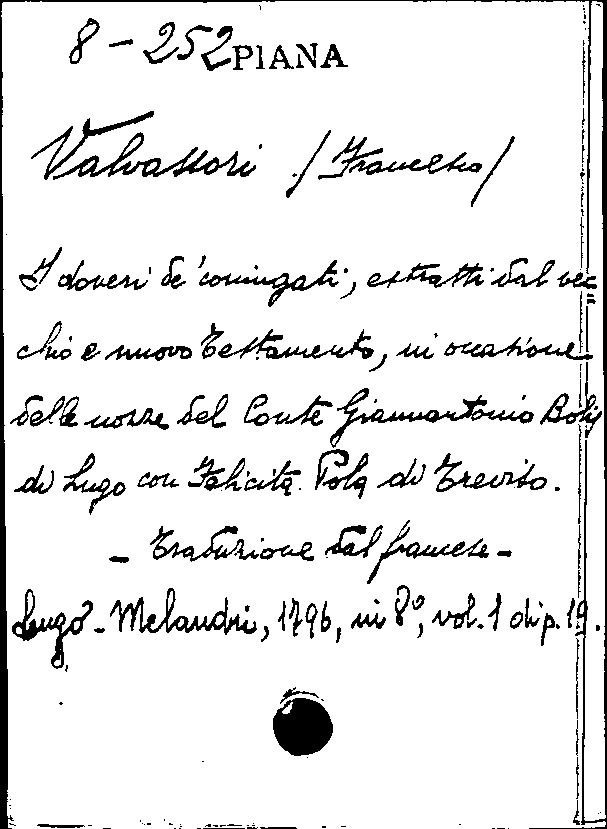 8 - 252 PIANA
Valvassori /Francesco/
I doveri de' coniugati, estratti dal vec=
chio e nuovo Testamento, in occasione
delle nozze del Conte Giannantonio Bolis
di Lugo con Felicita Pola di Treviso.
- Traduzione dal francese -
Lugo - Melandri, 1796, in 8º, vol. 1 di p. 19.